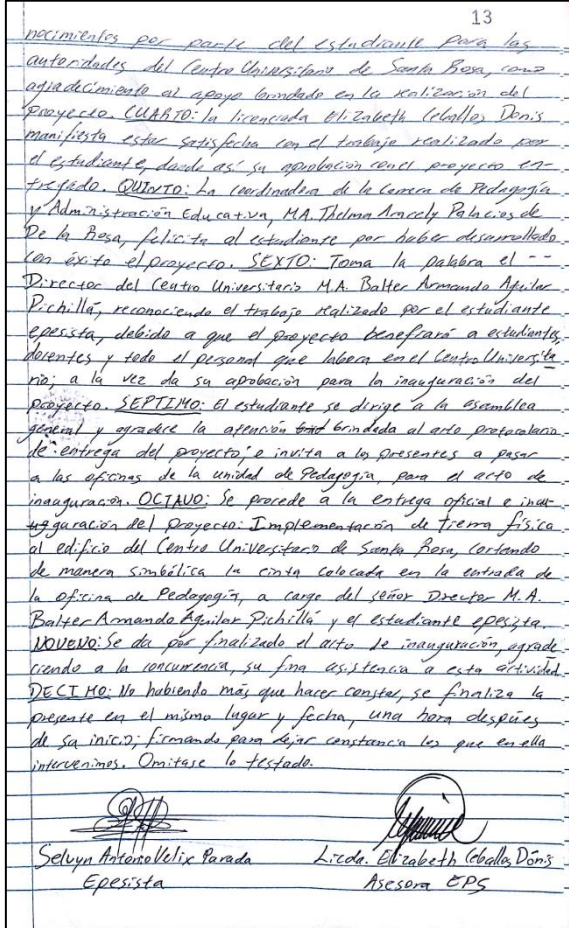 13
nocimientos por parte del estudiante para las
autoridades del Centro Universitario de Santa Rosa, como
agradecimiento al apoyo brindado en la realización del
proyecto. CUARTO: la licenciada Elizabeth Ceballos Donis
manifiesta estar satisfecha con el trabajo realizado por
el estudiante, dando así su aprobación con el proyecto en-
tregado. QUINTO: La coordinadora de la Carrera de Pedagogía
y Administración Educativa, MA. Thelma Aracely Palacios de
De la Rosa, felicita al estudiante por haber desarrollado
con éxito el proyecto. SEXTO: Toma la palabra el --
Director del Centro Universitario M.A. Balter Armando Aguilar
Pichillá, reconociendo el trabajo realizado por el estudiante
epesista, debido a que el proyecto benefirará a estudiantes,
docentes y todo el personal que labora en el Centro Universita
rio; a la vez da su aprobación para la inauguración del
proyecto. SEPTIMO: El estudiante se dirige a la asamblea
general y agradece la atención brindada al acto protocolario
de entrega del proyecto; e invita a los presentes a pasar
a las oficinas de la unidad de Pedagogía, para el acto de
inauguración. OCTAVO: Se procede a la entrega oficial e inau-
guración del proyecto: Implementación de tierra física
al edificio del Centro Universitario de Santa Rosa, cortando
de manera simbólica la cinta colocada en la entrada de
la oficina de Pedagogía, a cargo del señor Director M.A.
Balter Armando Aguilar Pichillá y el estudiante epesista.
NOVENO: Se da por finalizado el acto de inauguración, agrade
ciendo a la concurrencia, su fina asistencia a esta actividad
DECIMO: No habiendo más que hacer constar, se finaliza la
presente en el mismo lugar y fecha, una hora despúes
de su inicio; firmando para dejar constancia los que en ella
intervenimos. Omitase lo testado.
Selvyn Antonio Veliz Parada
Licda. Elizabeth Ceballos Dónis
Epesista
Asesora EPS